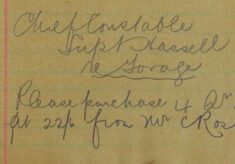 Chief Constable
Supt Hassell
re Forage
Please purchase 4 Qr.
at 22/6 from Mr C Ros